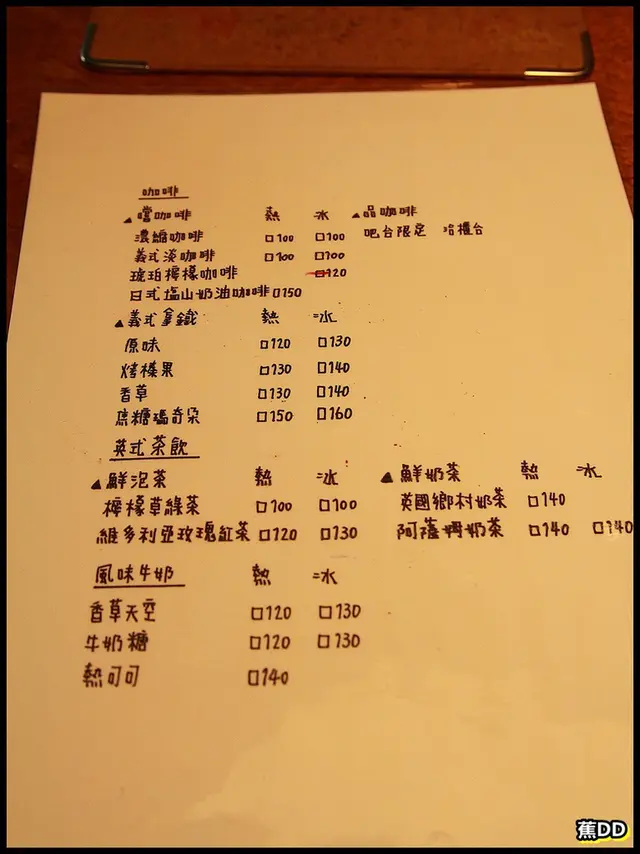 咖啡
▲嚐咖啡 熱 冰 ▲品咖啡
濃縮咖啡 □100 □100 吧台限定 洽櫃台
義式淡咖啡 □100 □100
琥珀檸檬咖啡 □120
日式塩山奶油咖啡 □150
▲義式拿鐵 熱 冰
原味 □120 □130
烤榛果 □130 □140
香草 □130 □140
焦糖瑪奇朵 □150 □160
英式茶飲
▲鮮泡茶 熱 冰 ▲鮮奶茶 熱 冰
檸檬草綠茶 □100 □100 英國鄉村奶茶 □140
維多利亞玫瑰紅茶 □120 □130 阿薩姆奶茶 □140 □140
風味牛奶 熱 冰
香草天空 □120 □130
牛奶糖 □120 □130
熱可可 □140
蕉DD